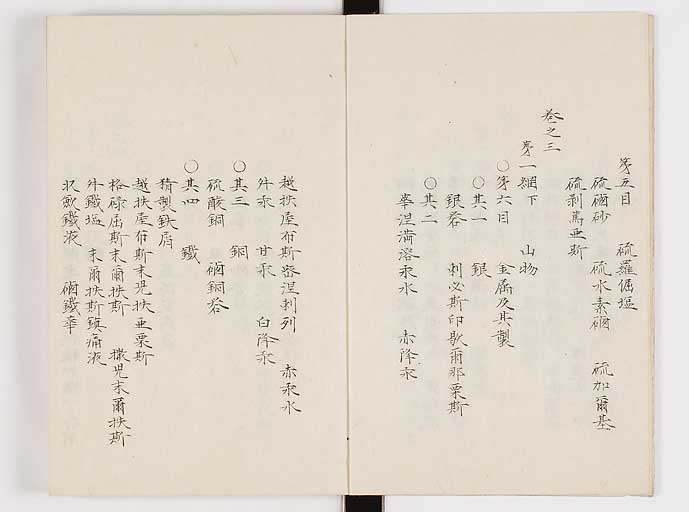 第五目　硫羅倔塩
硫磠砂　硫水素磠　硫加爾基
硫剥篤亜斯
巻之三
第一綱下　山物
○第六目　金属及其製
○其一　銀
銀蓉　刺必斯印歇爾那栗斯
○其二
峯涅満溶汞水　赤降汞
越抉屋布斯密涅剌列　赤汞水
升汞　甘汞　白降汞
○其三　銅
硫酸銅　磠銅蓉
○其四　鐵
精製鉄屑
越抉屋布斯末児抉亜栗斯
格碌屈斯末爾抉斯　撒児末爾抉斯
升鐵塩　末爾抉斯鎮痛液
収歛鐵液　磠鐵華